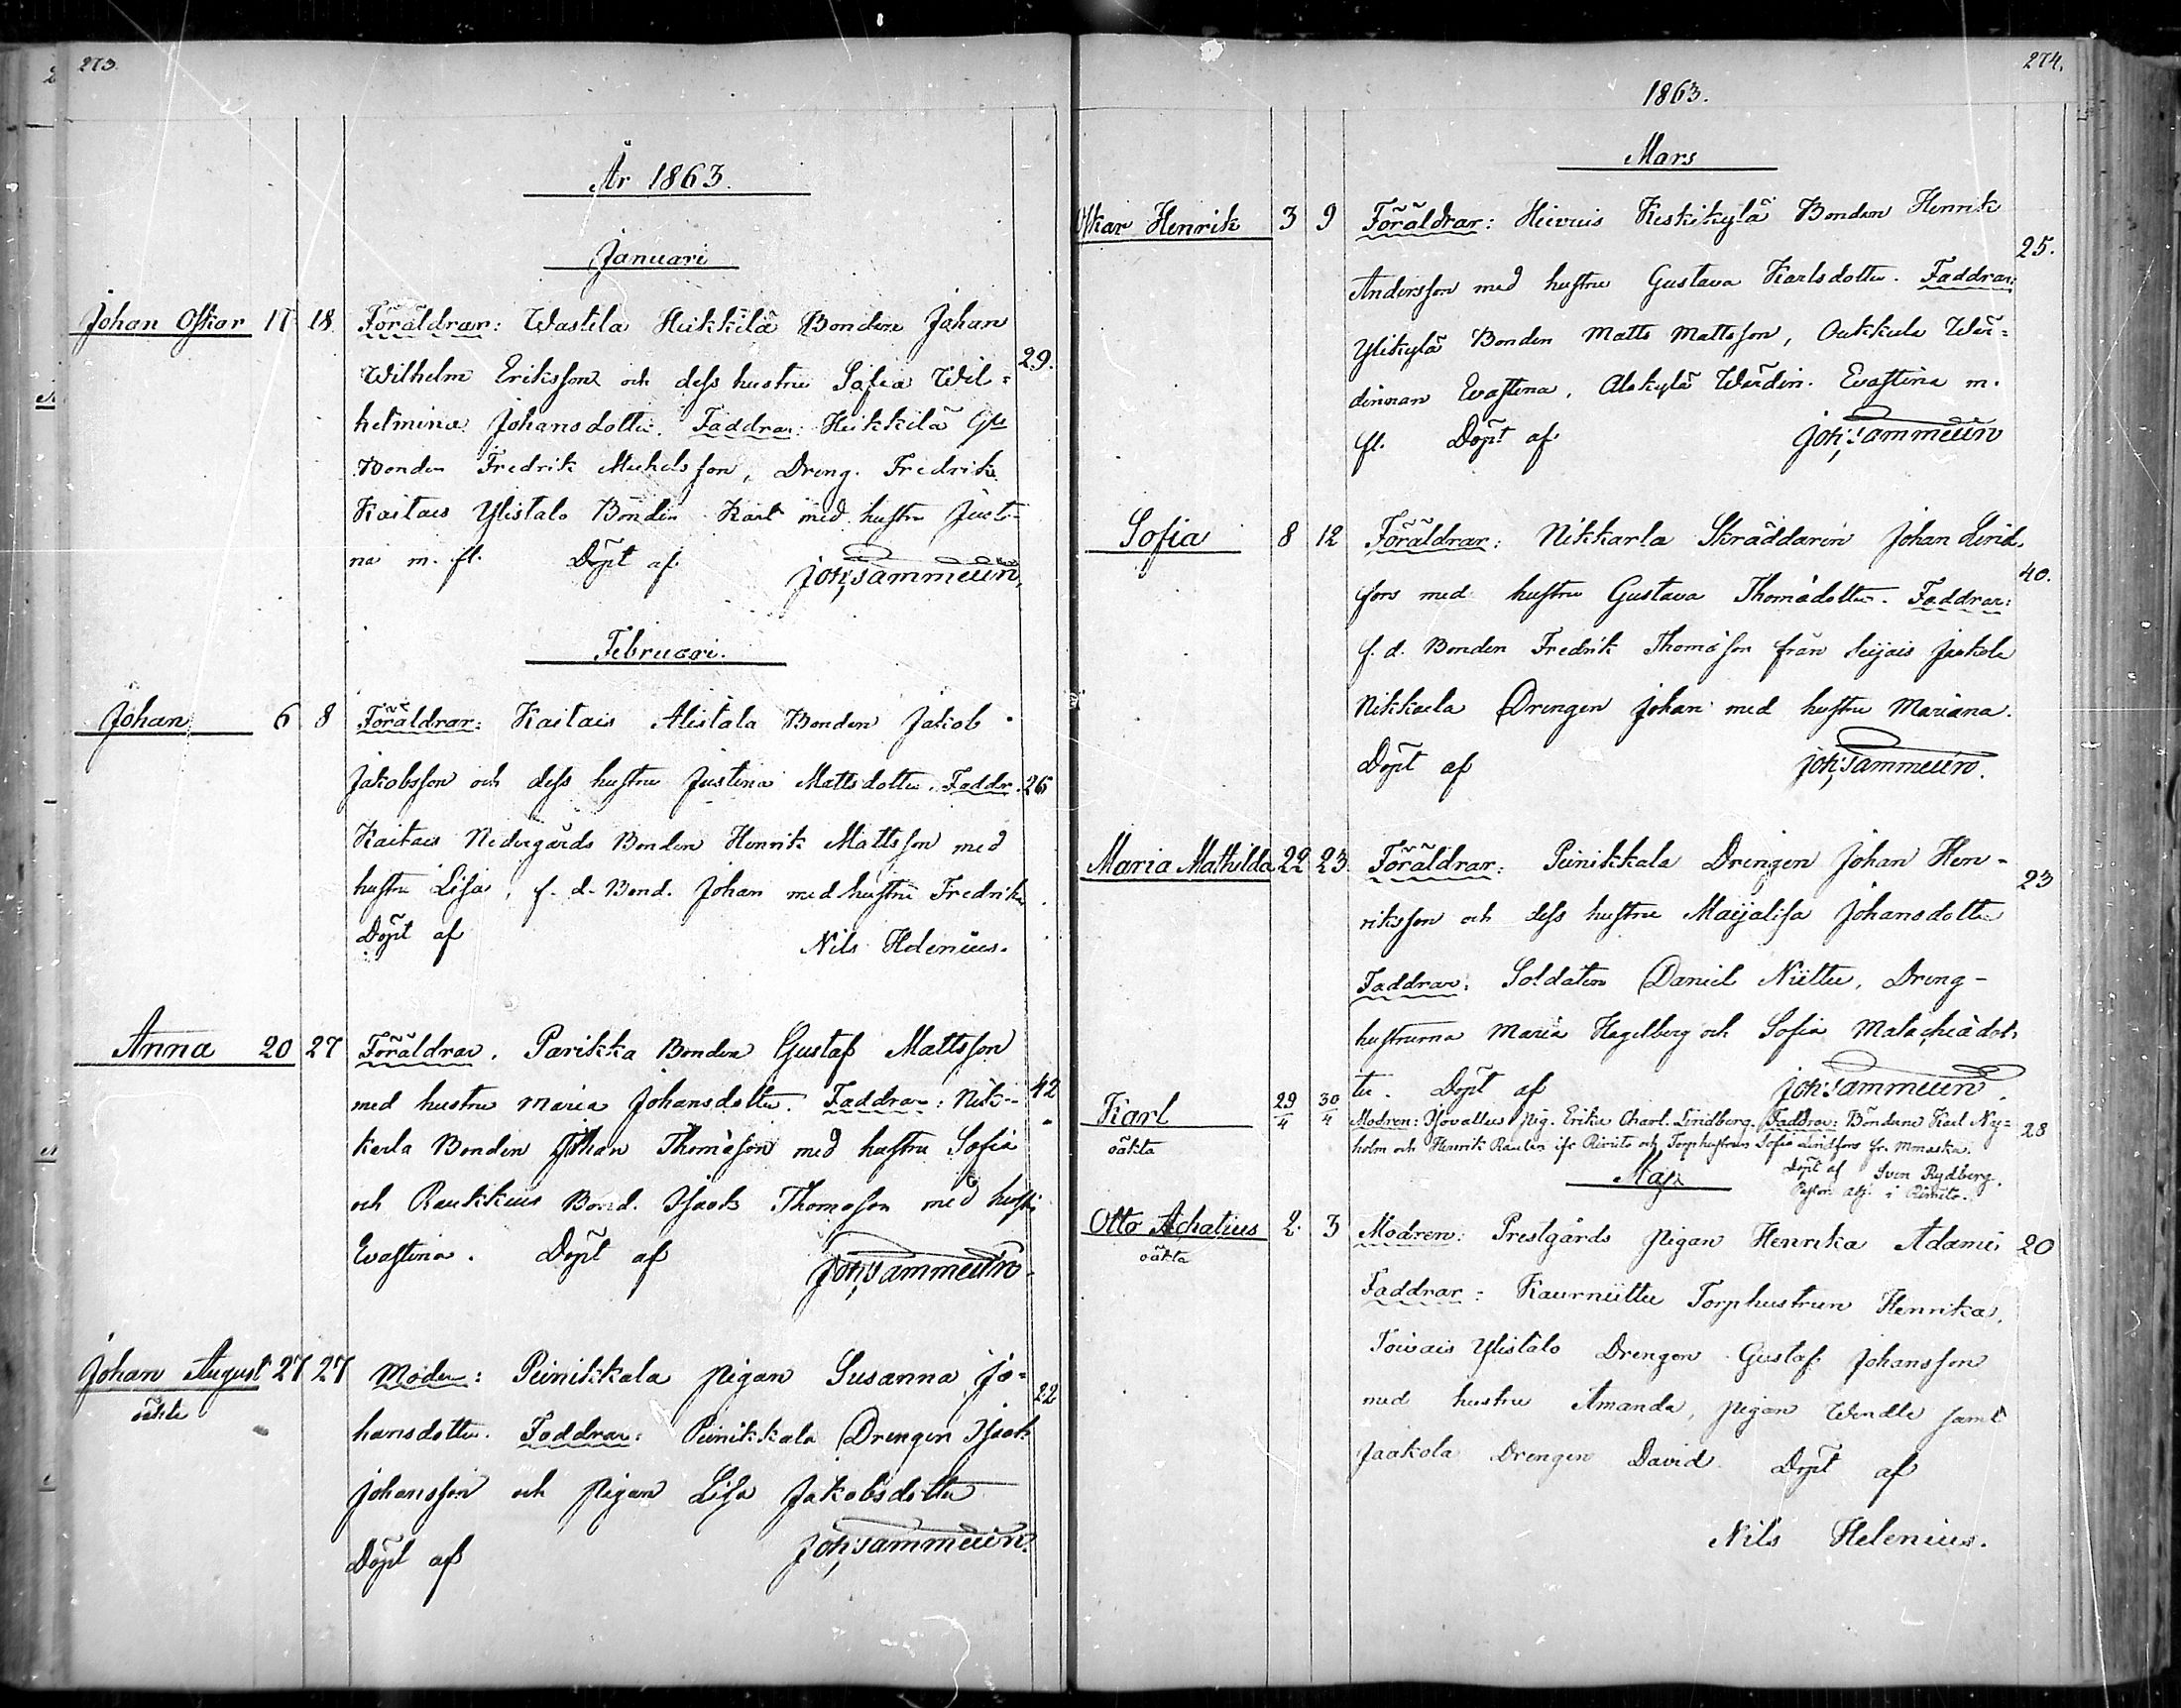 273.
År 1863.
Januari
Johan Oskar 17 18 Föräldrar: Wastila Heikkilä Bonden Johan
Wilhelm Eriksson och dess hustru Sofia Wil= 29.
helmina Johansdotter. Faddrar: Heikkilä
Bonden Fredrik Michelsson, Dreng. Fredrik
Kaitais Ylistalo Bonden Karl med hustru Justi-
na m. fl. Döpt af Joh: Sammeun
Februari.
Johan 6 8 Föräldrar: Kaitais Alistalo Bonden Jakob
Jakobsson och dess hustru Justina Mattsdotter. Faddr. 26
Kaitais Nedergårds Bonden Henrik Mattsson med
hustru Lisa, f. d. Bond. Johan med hustru Fredrika
Döpt af Nils Helenius.
Anna 20 27 Föräldrar. Parikka Bonden Gustaf Mattsson
med hustru Maria Johansdotter. Faddrar: Nik- 42
karla Bonden Johan Thomasson med hustru Sofia
och Raukkais Bond. Isaak Thomasson med hustr.
Evastina. Döpt af Joh: Sammeun
Johan August 27 27 Moder: Peinikkala pigan Susanna Jo=
oäkta 22
hansdotter. Faddrar: Peinikkala Drengen Isaak
Johansson och pigan Lisa Jakobsdotter
Döpt af Joh: Sammeun
274.
1863.
Mars
Oskar Henrik 3 9 Föräldrar: Hievais Keskikylä Bonden Henrik
25.
Andersson med hustru Gustava Karlsdotter. Faddrar:
Ylikylä Bonden Matts Mattsson, Oukkula Wär=
dinnan Evastina, Alakylä Wärdin. Evastina m.
fl. Döpt af Joh: Sammeun
Sofia 8 12 Föräldrar: Nikkarla Skräddaren Johan Lind,
40.
fors med hustru Gustava Thomadotter. Faddrar:
f. d. Bonden Fredrik Thomasson från Jaakola
Nikkarla Drengen Johan med hustru Mariana.
Döpt af Joh: Sammeun
Maria Mathilda 22 23. Föräldrar: Peinikkala Drengen Johan Hen- 23
riksson och dess hustru Maijalisa Johansdotter
Faddrar: Soldaten Daniel Niittu, Dreng-
hustrurna Maria Hagelberg och Sofia Malachiädot-
ter. Döpt af Joh: Sammeun
Karl 29/4 30/4 Modren: pig. Erika Charl. Lindberg. Faddrar: Bönderne Karl Ny= 28
oäkta holm och Henrik Raulin ifr. Rimito och Torphustrun Sofia Lindfors fr.
Döpt af Sven Rydberg.
Pastors adj. i Rimito.
Maji
Otto Achatius 2. 3 Modren: Prestgårds pigan Henrika Adami 20
oäkta
Faddrar: Kaurniittu Torphustrun Henrika,
Toivais Ylistalo Drengen Gustaf Johansson
med hustru Amanda, pigan Wendla samt
Jaakola Drengen David. Döpt af
Nils Helenius.